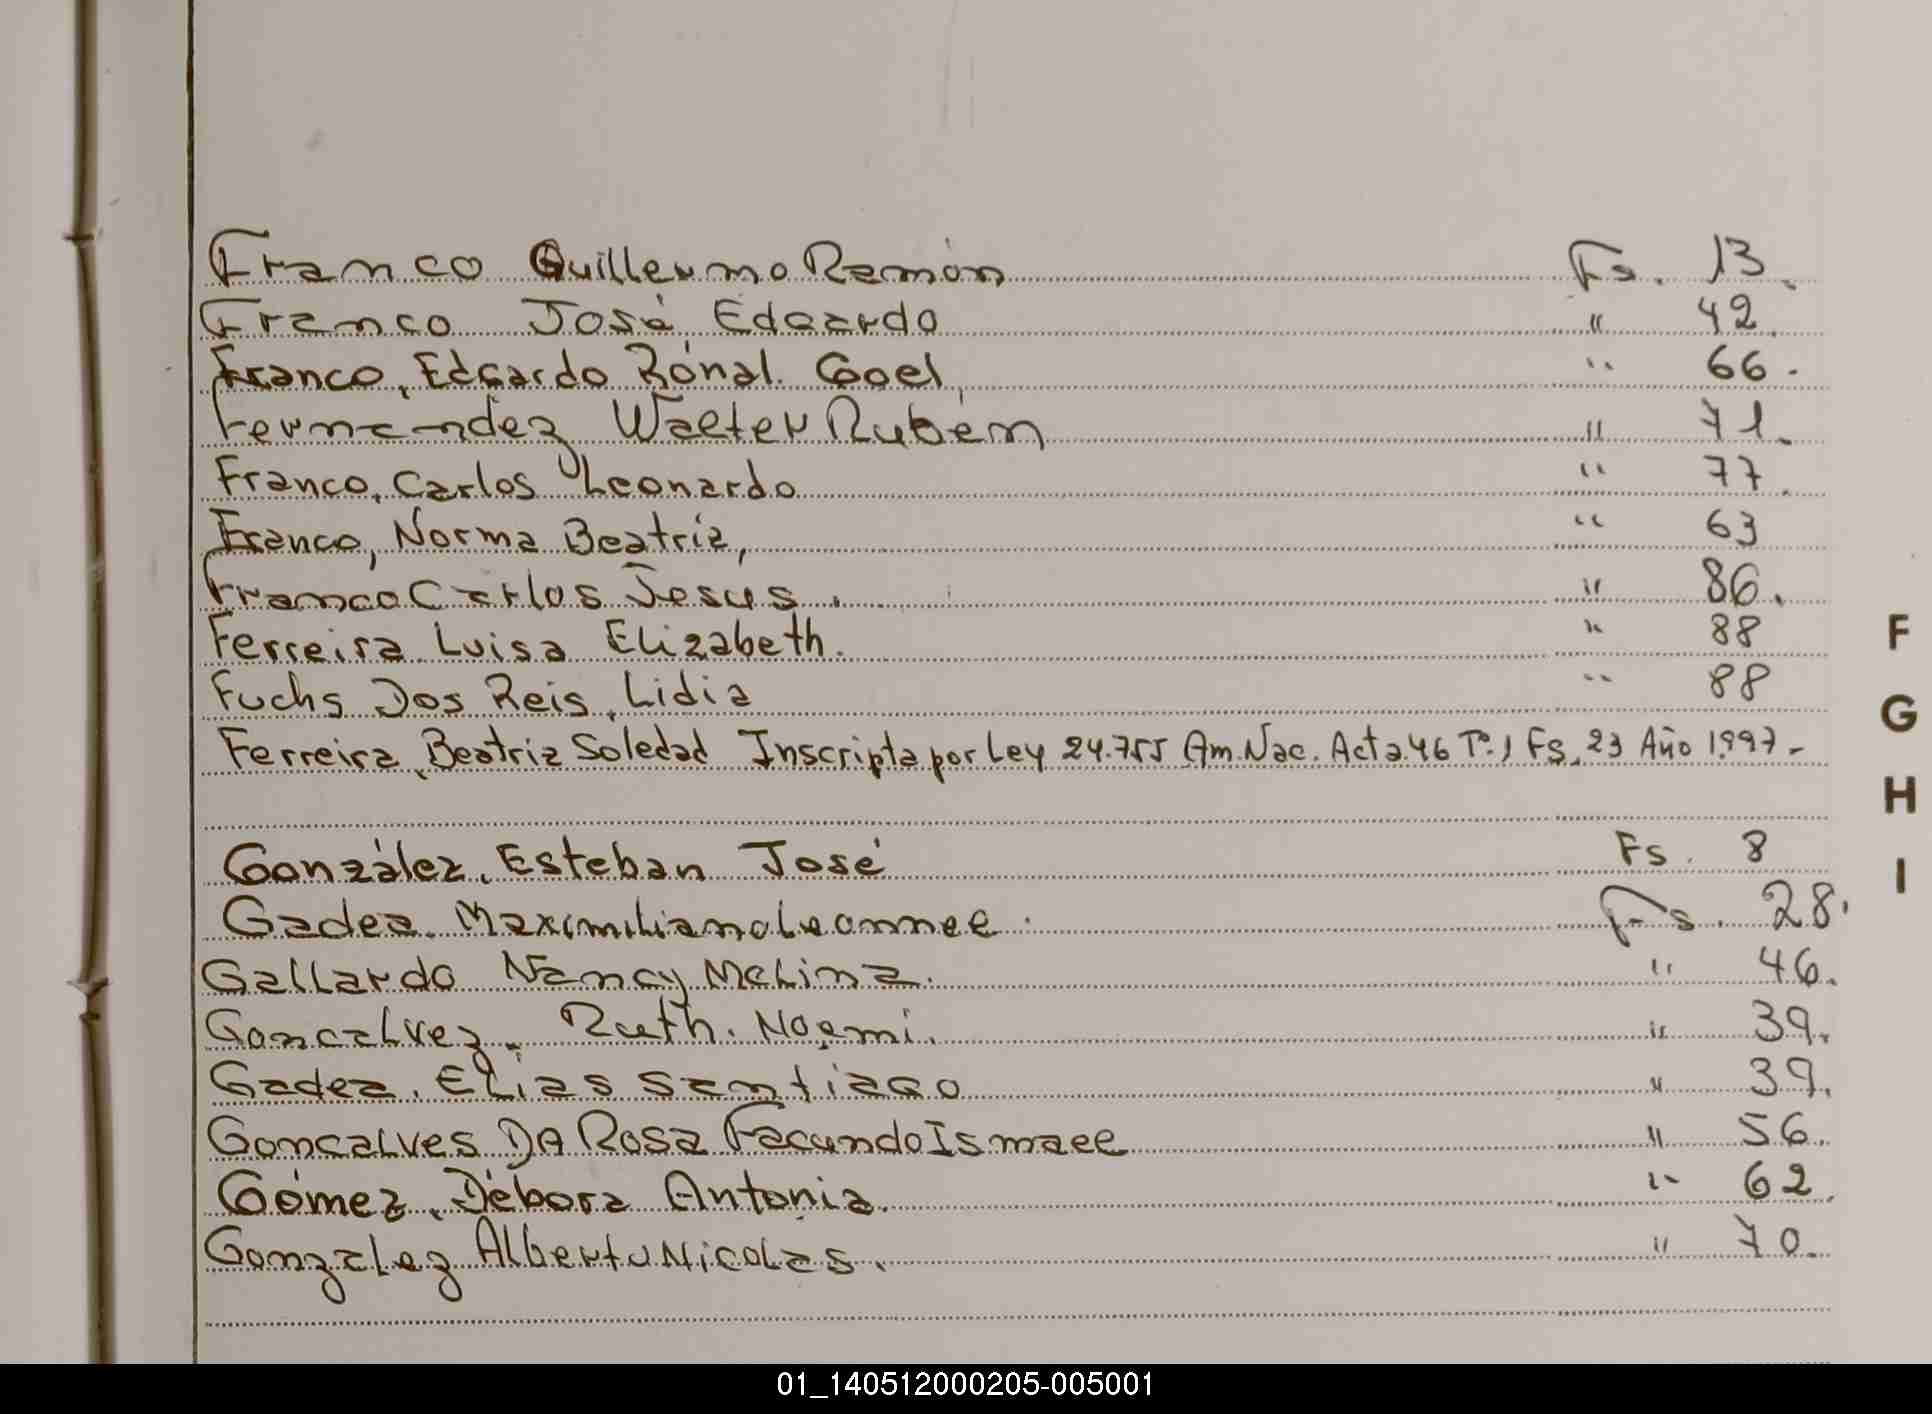 Franco Guillermo Ramón Fs. 13.
Franco José Edgardo " 42.
Franco, Edgardo Rónal Goel " 66.
Fernandez Walter Rubém " 71.
Franco, Carlos Leonardo " 77.
Franco, Norma Beatriz, " 63
Franco Carlos Jesus. " 86.
Ferreira Luisa Elizabeth. " 88
Fuchs Dos Reis, Lidia " 88
Ferreira, Beatriz Soledad Inscripta por Ley 24.755 Am. Nac. Acta 46 Tº 1 Fs. 23 Año 1997.-
González, Esteban José Fs. 8
Gadea. Maximiliano Leonnel. Fs. 28.
Gallardo Nancy Melina. " 46.
Goncalvez. Ruth. Noemi. " 39.
Gadea. Elias Santiago " 39.
Goncalves DA Rosa Facundo Ismael " 56.
Gómez, Débora Antonia. " 62.
Gonzalez Alberto Nicolas. " 70.
F
G
H
I
01_140512000205-005001